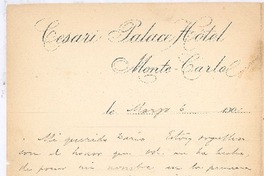 Cesari Palace Hôtel
Monte-Carlo
le Marzo 6 190
Mi querido Dario Estoy orgulloso
con el honor que Vd. me ha hecho
de poner mi nombre en la primera